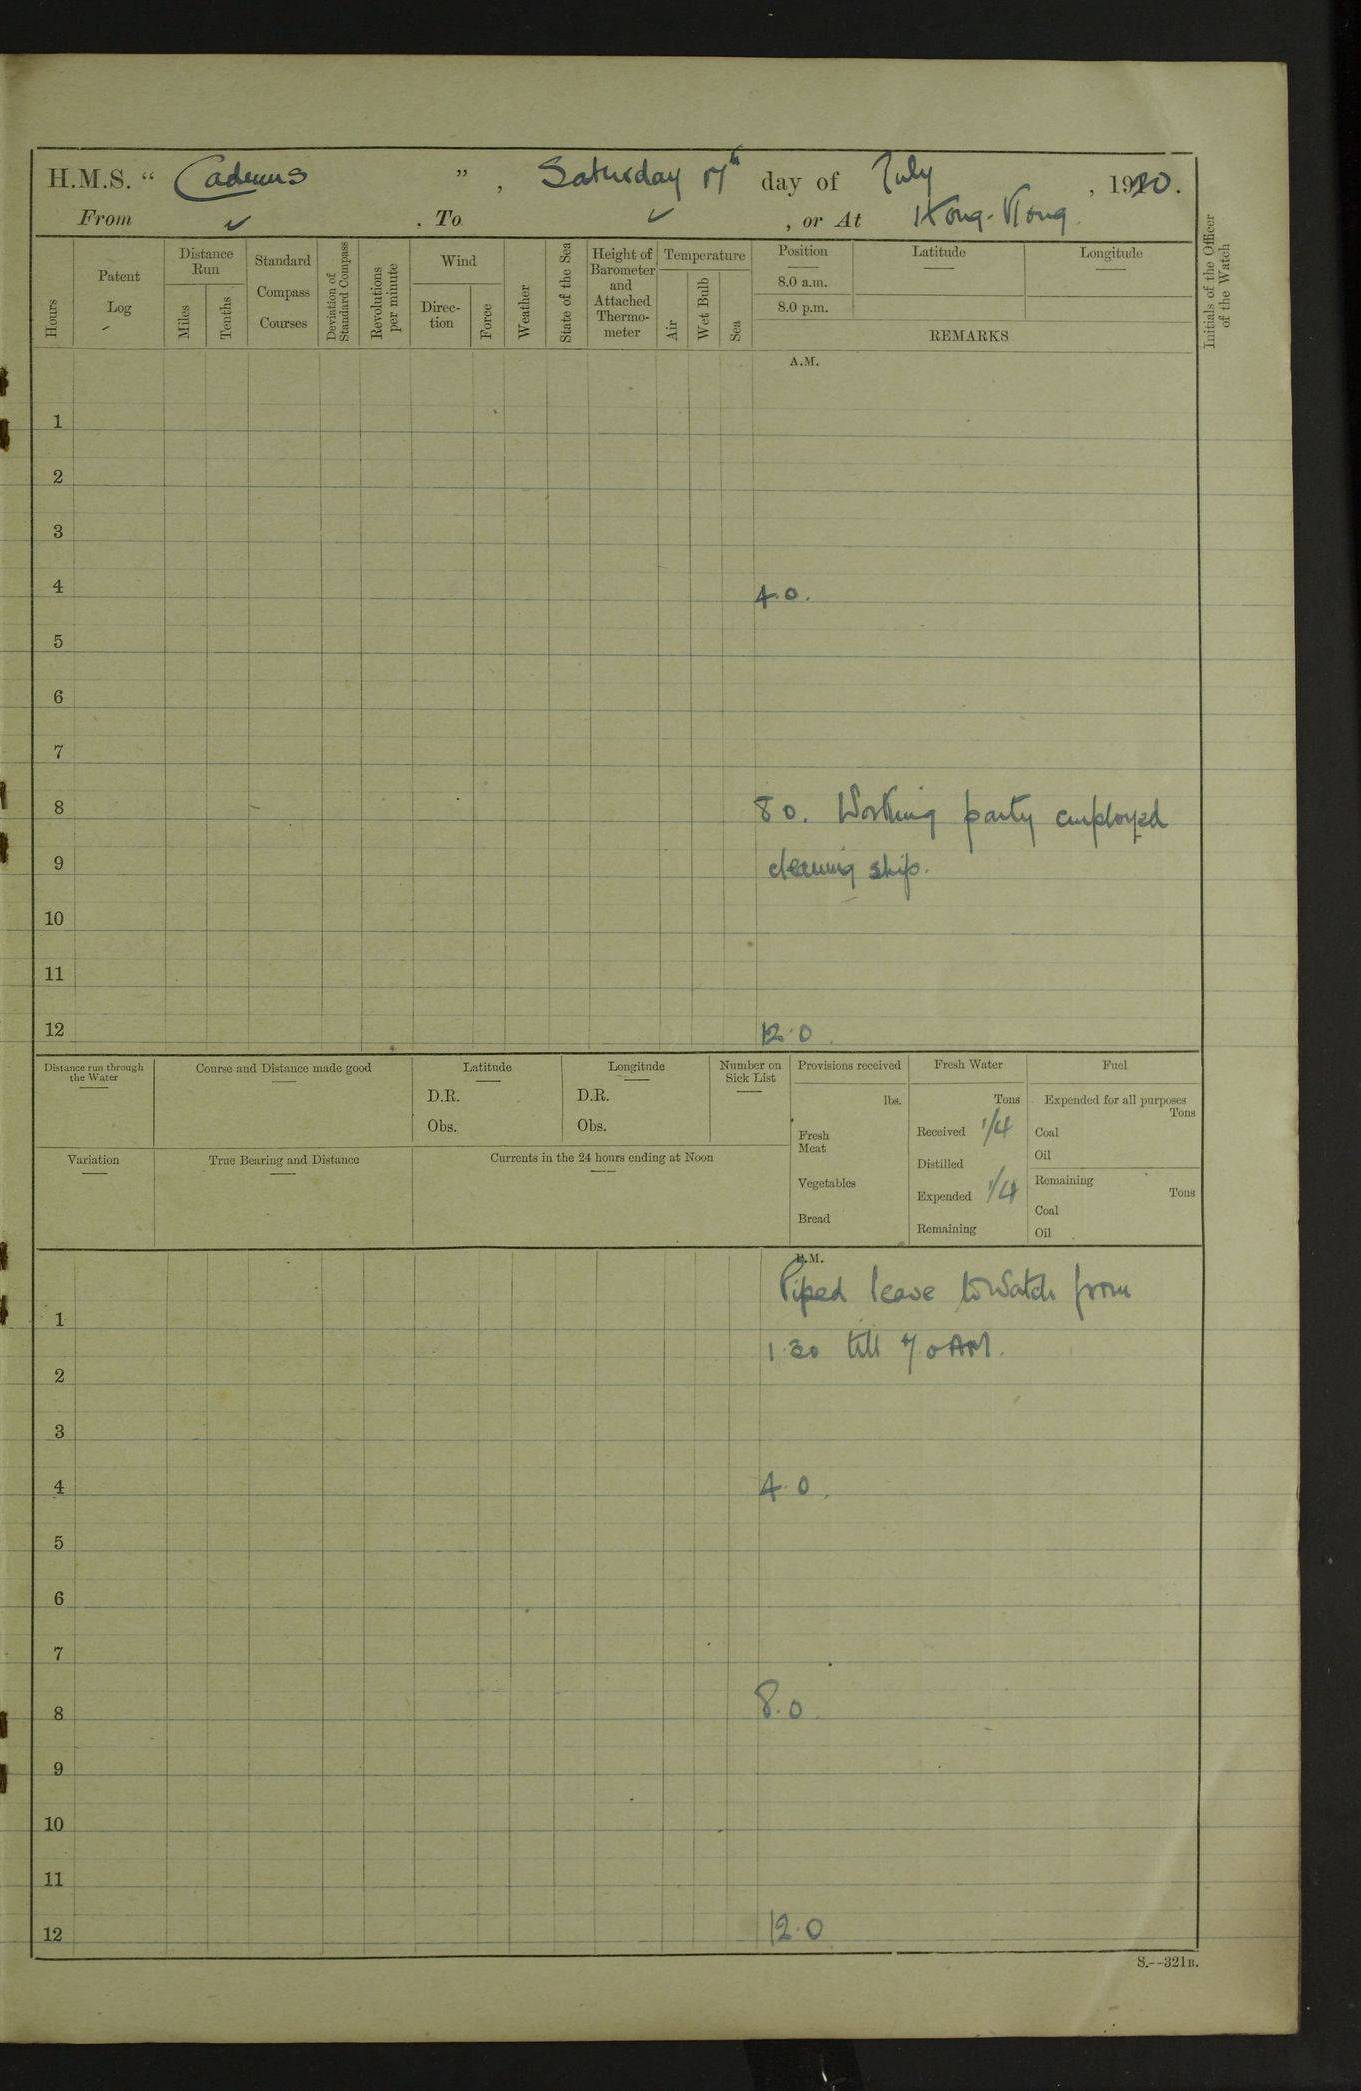 H.M.S. “ Cadmus ” , Saturday 17th day of July , 1920.
From ✓ . To ✓ , or At Hong-Kong.
Hours
Patent Log
Distance Run
Miles
Tenths
Standard Compass Courses
Deviation of Standard Compass
Revolutions per minute
Wind
Direc-tion
Force
Weather
State of the Sea
Height of Barometer and Attached Thermo-meter
Temperature
Air
Wet Bulb
Sea
Position
8.0 a.m.
8.0 p.m.
Latitude
Longitude
REMARKS
Initials of the Officer of the Watch
A.M.
1
2
3
4 4.0.
5
6
7
8 8 0. Working party employed
9 cleaning ship.
10
11
12 12.0
Distance run through the Water
Course and Distance made good
Latitude
D.R.
Obs.
Longitude
D.R.
Obs.
Number on Sick List
Provisions received
lbs.
Fresh Meat
Vegetables
Bread
Fresh Water
Tons
Received 1/4
Distilled
Expended 1/4
Remaining
Fuel
Expended for all purposes
Tons
Coal
Oil
Remaining
Tons
Coal
Oil
Variation
True Bearing and Distance
Currents in the 24 hours ending at Noon
P.M.
Piped leave to Watch from
1
1.30 till 7 0 AM.
2
3
4 4.0.
5
6
7
8 8.0.
9
10
11
12 12.0
S.--321B.